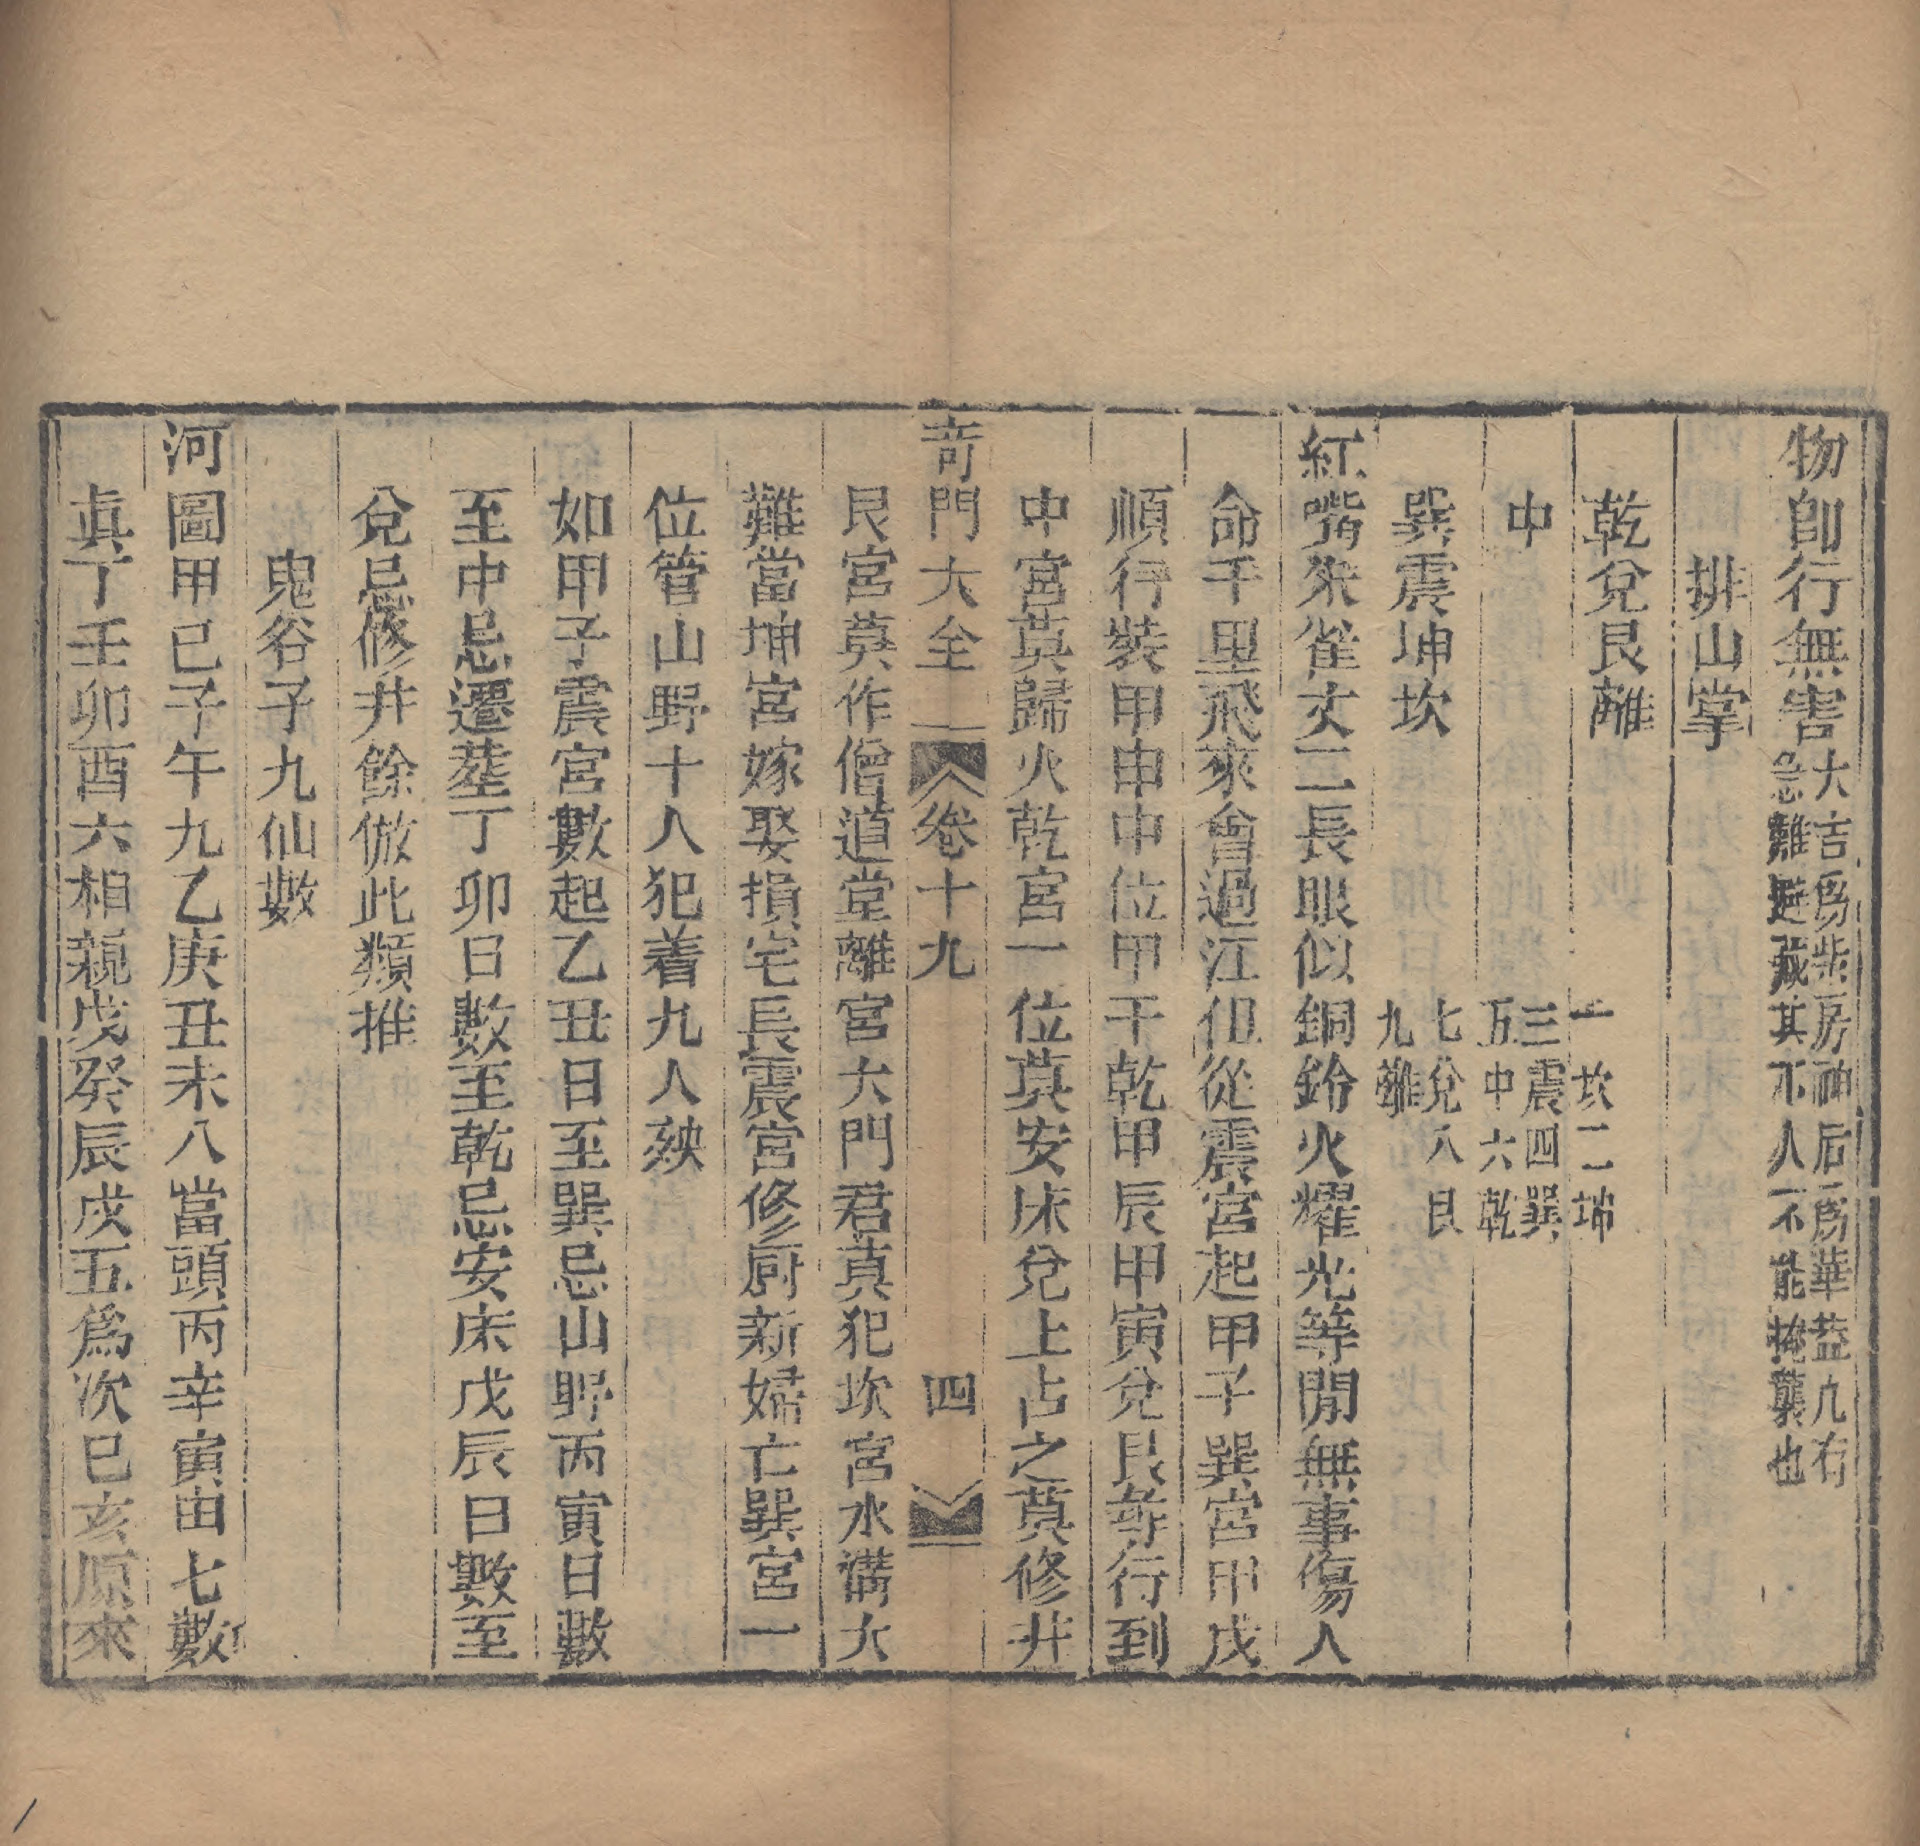 物卽行無害大吉爲紫房神后爲華葢凢有
急難避藏其下人不能掩襲也
排山掌
乾兌艮離
一坎二坤
中
三震四巽
五中六乾
巽震坤坎
七兌八艮
九離
紅嘴朱雀丈二長眼似銅鈴火耀光等閒無事傷人
命千里飛來會過江但從震宮起甲子巽宮甲戌
順行裝甲申中位甲午乾甲辰甲寅兌艮等行到
中宮莫歸火乾宮一位莫安床兌上占之莫修井
竒門大全
卷十九
四
艮宮莫作僧道堂離宮大門君莫犯坎宮水溝大
難當坤宮嫁娶損宅長震宮修厨新婦亡巽宮一
位管山野十人犯着九人殃
如甲子震宮數起乙丑日至巽忌山野丙寅日數
至中忌遷塟丁卯日數至乾忌安床戊辰日數至
兌忌修井餘倣此類推
鬼谷子九仙數
河圖甲己子午九乙庚丑未八當頭丙辛寅由七數
真丁壬卯酉六相親戊癸辰戌五爲次巳亥原來